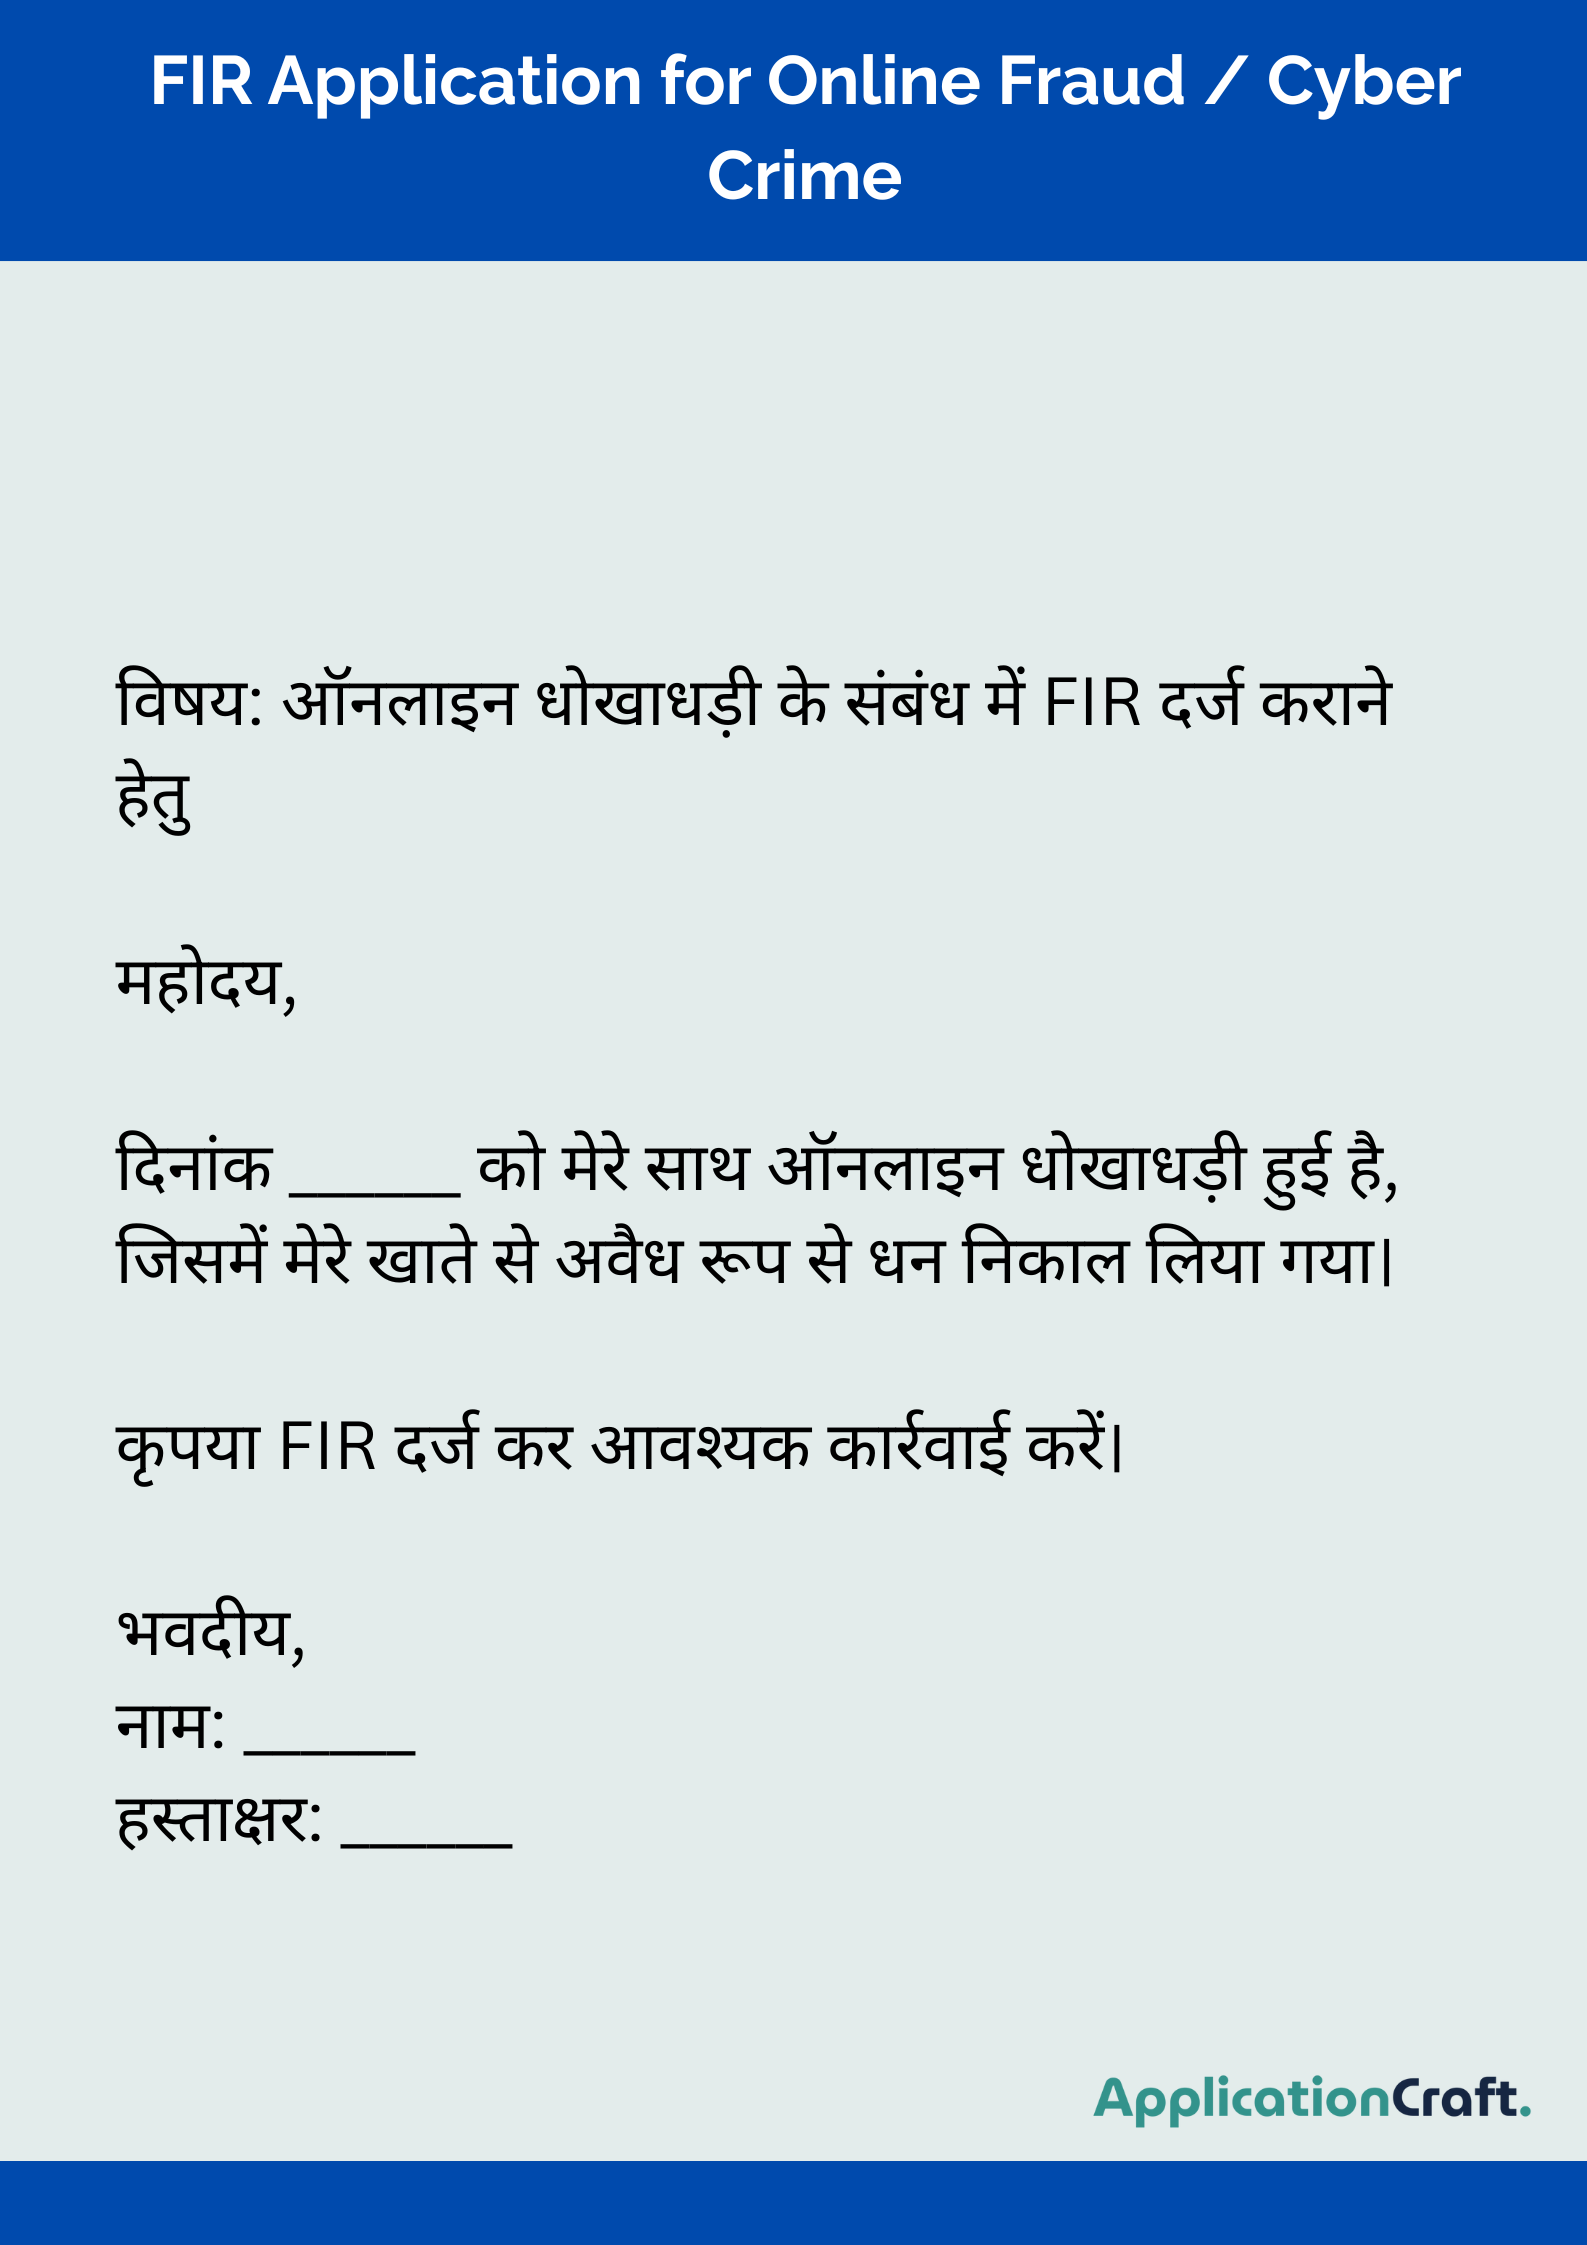 FIR Application for Online Fraud / Cyber
Crime
विषय: ऑनलाइन धोखाधड़ी के संबंध में FIR दर्ज कराने
हेतु
महोदय,
दिनांक ______ को मेरे साथ ऑनलाइन धोखाधड़ी हुई है,
जिसमें मेरे खाते से अवैध रूप से धन निकाल लिया गया।
कृपया FIR दर्ज कर आवश्यक कार्रवाई करें।
भवदीय,
नाम: ______
हस्ताक्षर: ______
ApplicationCraft.